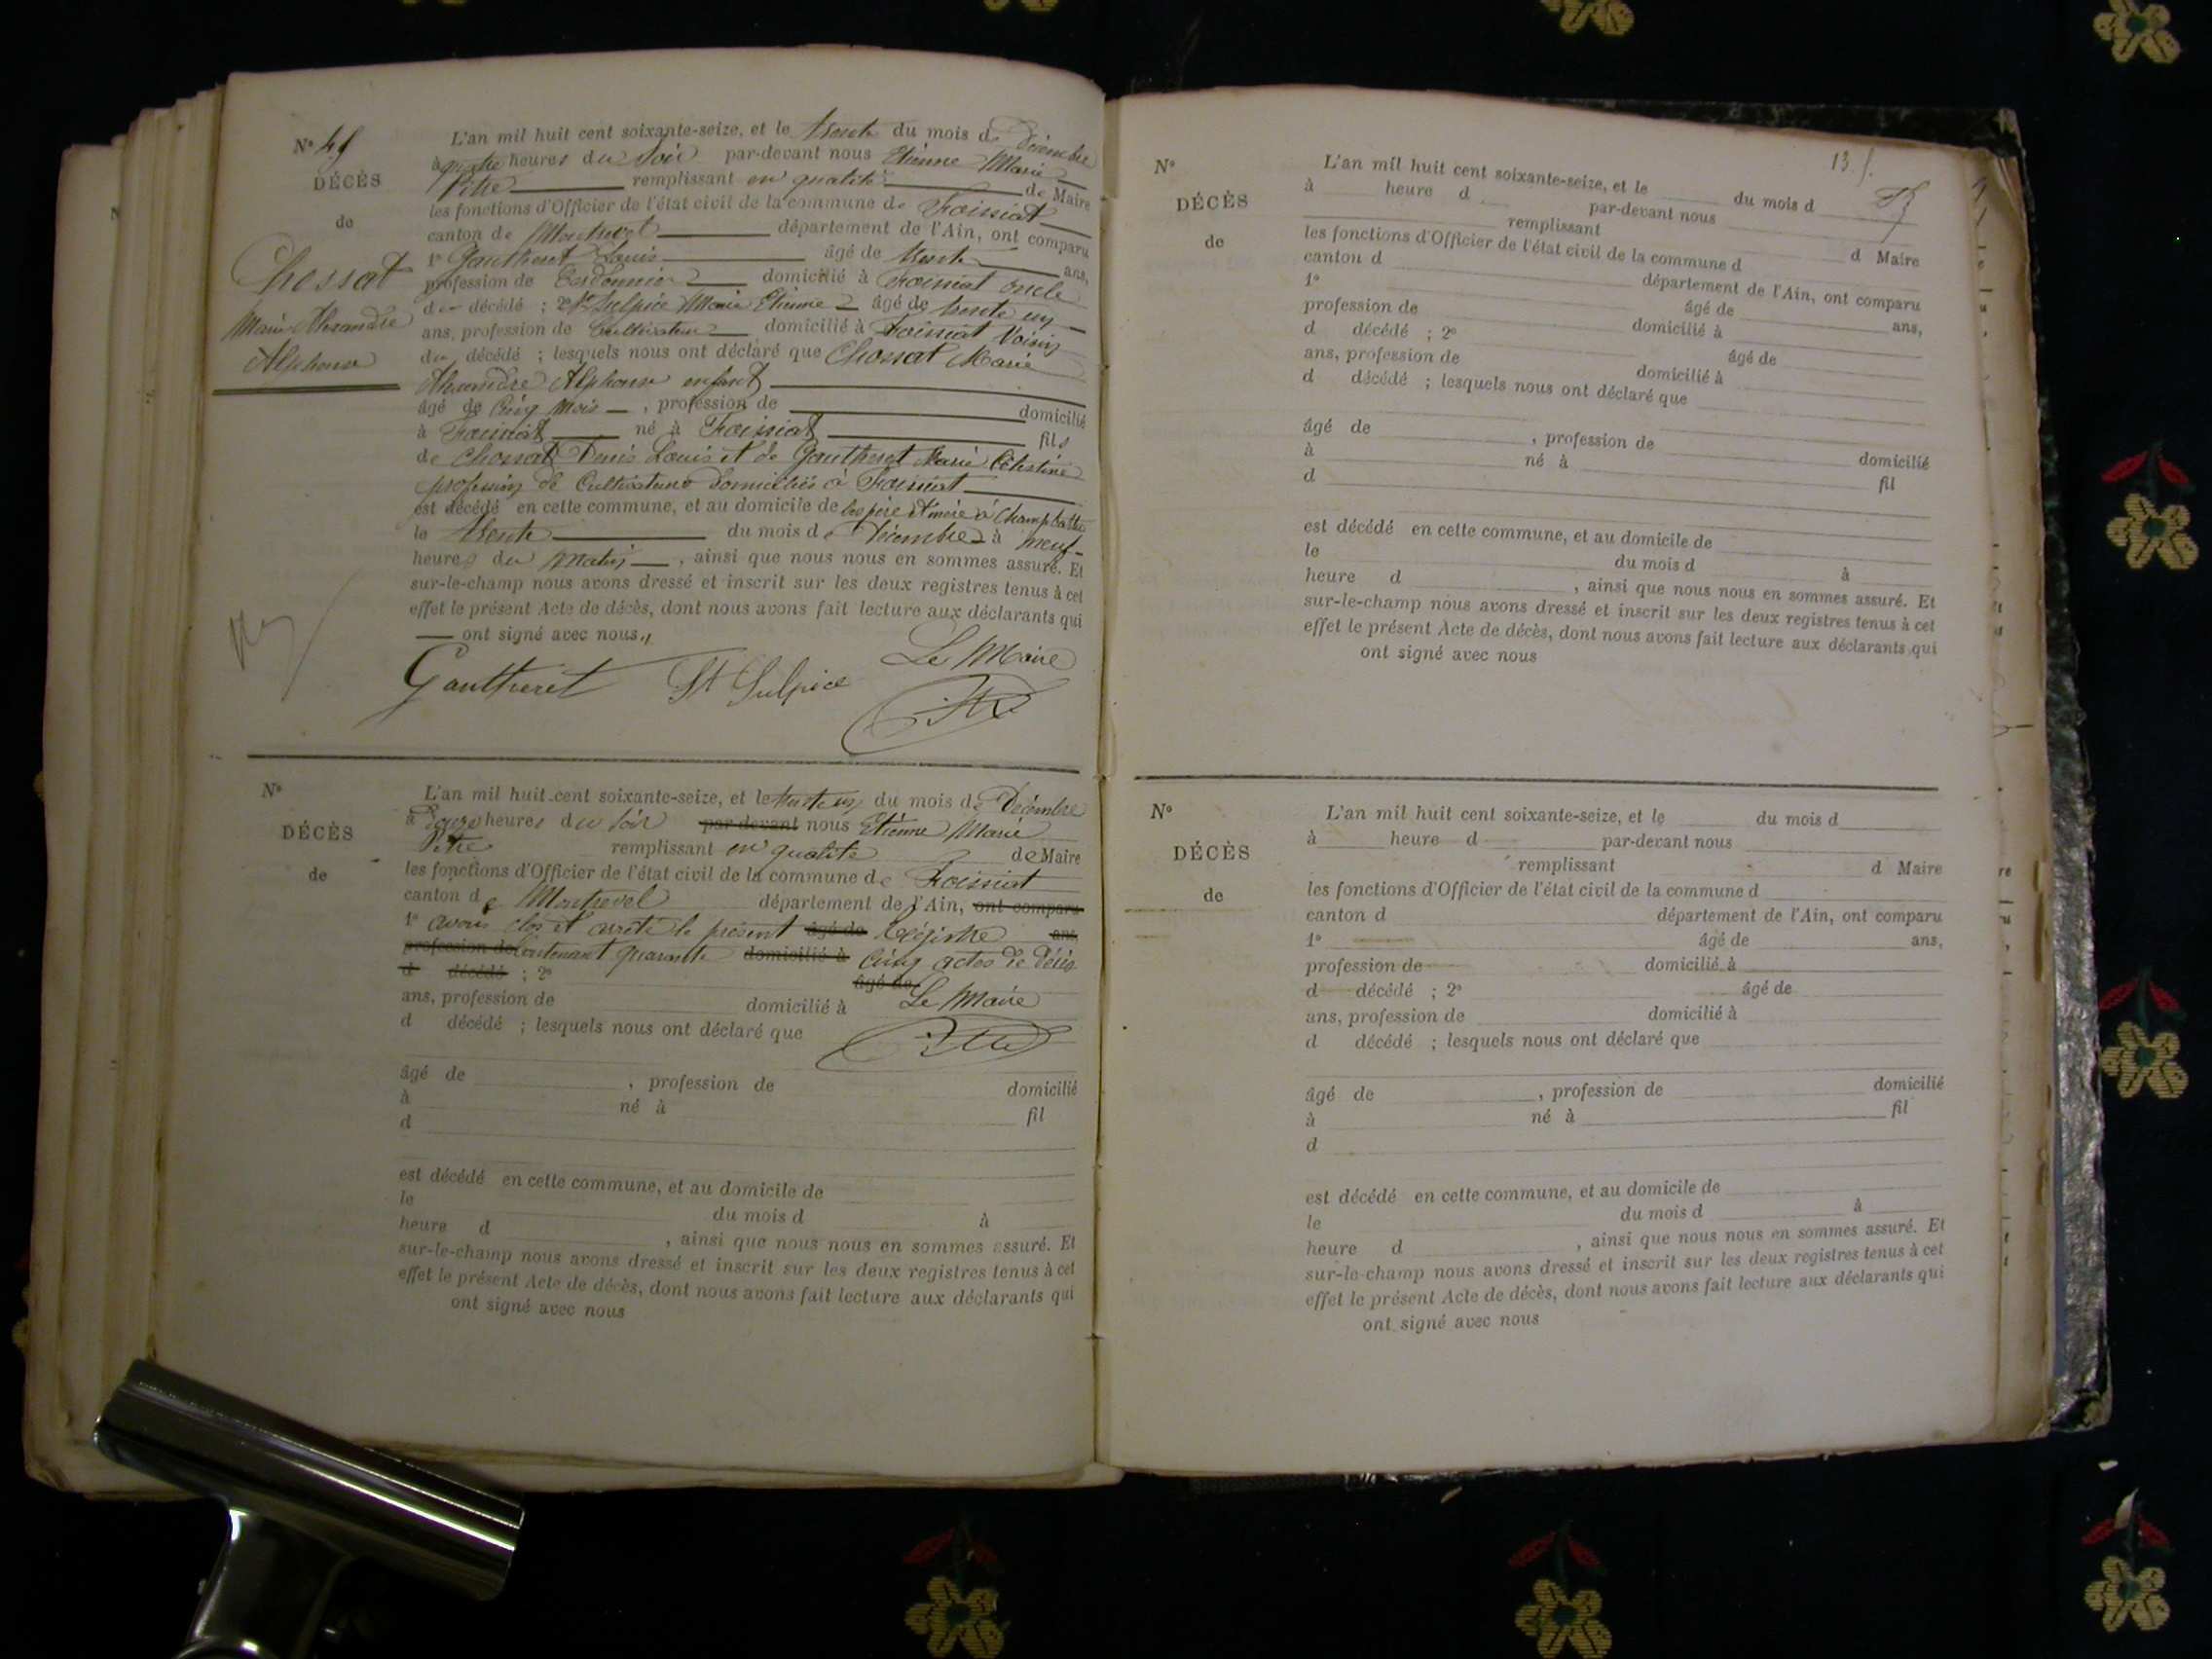 N° 45
DÉCÈS
de
Chossat
Marie Alexandre
Alphonse
L'an mil huit cent soixante-seize, et le trente du mois de Décembre
à quatre heures du soir par-devant nous Etienne Marie
Pitre remplissant en qualité de Maire
les fonctions d'Officier de l'état civil de la commune de Foissiat
canton de Montrevel département de l'Ain, ont comparu
1° Gautheret Louis âgé de trente ans,
profession de Cordonnier domicilié à Foissiat oncle
du décédé ; 2° St Sulpice Marie Etienne âgé de trente un
ans, profession de Cultivateur domicilié à Foissiat Voisin
du décédé ; lesquels nous ont déclaré que Chossat Marie
Alexandre Alphonse enfant
âgé de Cinq mois , profession de domicilié
à Foissiat né à Foissiat fils
de Chossat Denis Louis et de Gautheret Marie Célestine
profession de Cultivateurs domiciliés à Foissiat
est décédé en cette commune, et au domicile de ses père et mère à Champ
le trente du mois de Décembre à neuf
heures du matin , ainsi que nous nous en sommes assuré. Et
sur-le-champ nous avons dressé et inscrit sur les deux registres tenus à cet
effet le présent Acte de décès, dont nous avons fait lecture aux déclarants qui
ont signé avec nous
Le Maire
Gautheret St Sulpice Pitre
N°
DÉCÈS
de
L'an mil huit cent soixante-seize, et le trente un du mois de Décembre
à Douze heures du soir par-devant nous Etienne Marie
Pitre remplissant en qualité de Maire
les fonctions d'Officier de l'état civil de la commune de Foissiat
canton de Montrevel département de l'Ain, ont comparu
1° avons clos et arrêté le présent âgé de Régistre ans,
profession de contenant quarante domicilié à Cinq actes de Décès
d décédé ; 2° âgé de
ans, profession de domicilié à Le Maire
d décédé ; lesquels nous ont déclaré que Pitre
âgé de , profession de domicilié
à né à fil
d
est décédé en cette commune, et au domicile de
le du mois d à
heure d , ainsi que nous nous en sommes assuré. Et
sur-le-champ nous avons dressé et inscrit sur les deux registres tenus à cet
effet le présent Acte de décès, dont nous avons fait lecture aux déclarants qui
ont signé avec nous
13
N°
DÉCÈS
de
L'an mil huit cent soixante-seize, et le du mois d
à heure d par-devant nous
remplissant d Maire
les fonctions d'Officier de l'état civil de la commune d
canton d département de l'Ain, ont comparu
1° âgé de ans,
profession de domicilié à
d décédé ; 2° âgé de
ans, profession de domicilié à
d décédé ; lesquels nous ont déclaré que
âgé de , profession de domicilié
à né à fil
d
est décédé en cette commune, et au domicile de
le du mois d à
heure d , ainsi que nous nous en sommes assuré. Et
sur-le-champ nous avons dressé et inscrit sur les deux registres tenus à cet
effet le présent Acte de décès, dont nous avons fait lecture aux déclarants qui
ont signé avec nous
N°
DÉCÈS
de
L'an mil huit cent soixante-seize, et le du mois d
à heure d par-devant nous
remplissant d Maire
les fonctions d'Officier de l'état civil de la commune d
canton d département de l'Ain, ont comparu
1° âgé de ans,
profession de domicilié à
d décédé ; 2° âgé de
ans, profession de domicilié à
d décédé ; lesquels nous ont déclaré que
âgé de , profession de domicilié
à né à fil
d
est décédé en cette commune, et au domicile de
le du mois d à
heure d , ainsi que nous nous en sommes assuré. Et
sur-le-champ nous avons dressé et inscrit sur les deux registres tenus à cet
effet le présent Acte de décès, dont nous avons fait lecture aux déclarants qui
ont signé avec nous